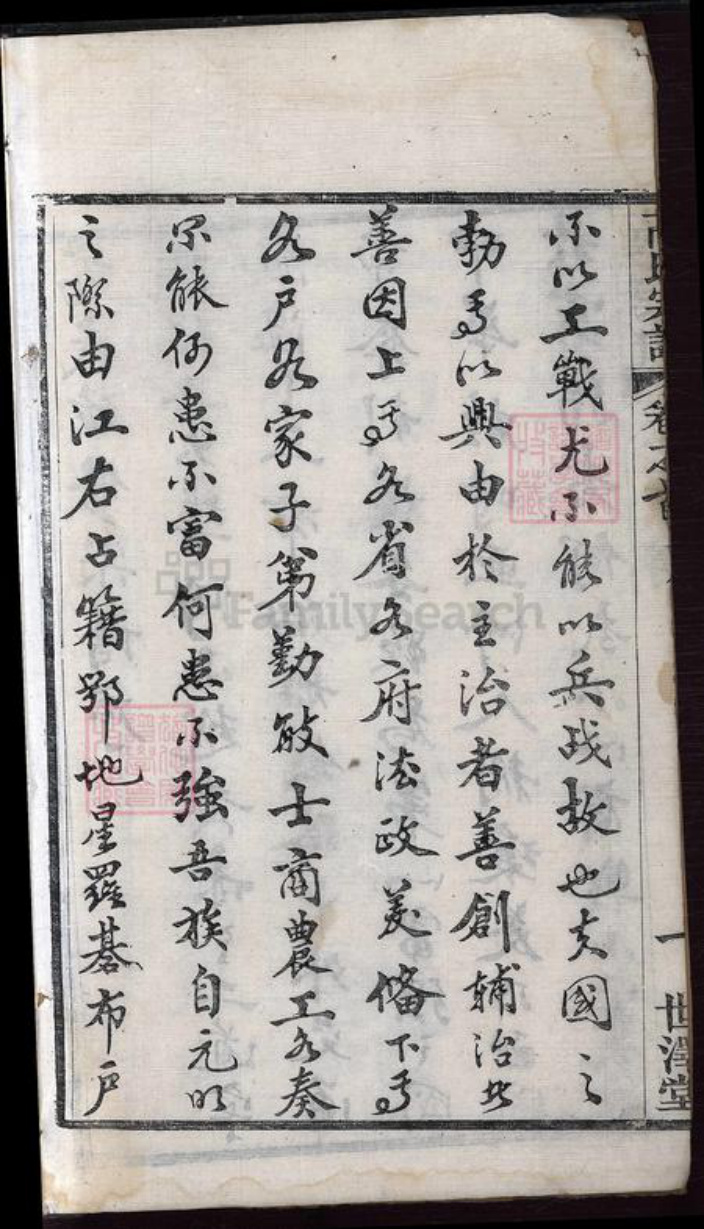 不以工戰尤不能以兵战故也夫國之
勃焉以興由於主治者善創輔治者
善因上焉各省各府法政美俻下焉
各户各家子弟勤敏士商農工各奏
尔能何患不富何患不強吾族自元明
之際由江右占籍鄂地星羅碁布户
氏宗譜 卷之首 一 世澤堂
FamilySearch